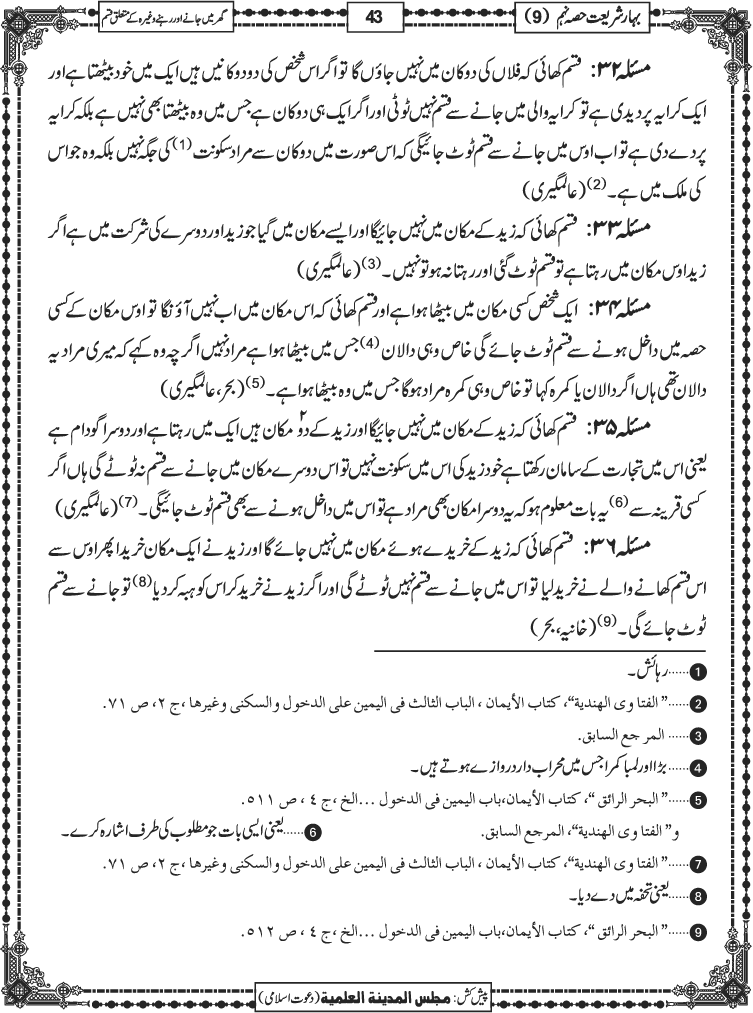 بہار شریعت حصہ نہم (9)
43
گھر میں جانے اور رہنے وغیرہ کے متعلق قسم
مسئلہ ۳۲: قسم کھائی کہ فلاں کی دوکان میں نہیں جاؤں گا تو اگر اس شخص کی دو دوکانیں ہیں ایک میں خود بیٹھتا ہے اور
ایک کرایہ پر دیدی ہے تو کرایہ والی میں جانے سے قسم نہیں ٹوٹی اور اگر ایک ہی دوکان ہے جس میں وہ بیٹھتا بھی نہیں ہے بلکہ کرایہ
پر دے دی ہے تو اب اوس میں جانے سے قسم ٹوٹ جائیگی کہ اس صورت میں دوکان سے مراد سکونت (1) کی جگہ نہیں بلکہ وہ جو اس
کی ملک میں ہے۔ (2) (عالمگیری)
مسئلہ ۳۳: قسم کھائی کہ زید کے مکان میں نہیں جائیگا اور ایسے مکان میں گیا جو زید اور دوسرے کی شرکت میں ہے اگر
زید اوس مکان میں رہتا ہے تو قسم ٹوٹ گئی اور رہتا نہ ہو تو نہیں۔ (3) (عالمگیری)
مسئلہ ۳۴: ایک شخص کسی مکان میں بیٹھا ہوا ہے اور قسم کھائی کہ اس مکان میں اب نہیں آؤنگا تو اوس مکان کے کسی
حصہ میں داخل ہونے سے قسم ٹوٹ جائے گی خاص وہی دالان (4) جس میں بیٹھا ہوا ہے مراد نہیں اگرچہ وہ کہے کہ میری مراد یہ
دالان تھی ہاں اگر دالان یا کمرہ کہا تو خاص وہی کمرہ مراد ہوگا جس میں وہ بیٹھا ہوا ہے۔ (5) (بحر، عالمگیری)
مسئلہ ۳۵: قسم کھائی کہ زید کے مکان میں نہیں جائیگا اور زید کے دو ۲ مکان ہیں ایک میں رہتا ہے اور دوسرا گودام ہے
یعنی اس میں تجارت کے سامان رکھتا ہے خود زید کی اس میں سکونت نہیں تو اس دوسرے مکان میں جانے سے قسم نہ ٹوٹے گی ہاں اگر
کسی قرینہ سے (6) یہ بات معلوم ہو کہ یہ دوسرا مکان بھی مراد ہے تو اس میں داخل ہونے سے بھی قسم ٹوٹ جائیگی۔ (7) (عالمگیری)
مسئلہ ۳۶: قسم کھائی کہ زید کے خریدے ہوئے مکان میں نہیں جائے گا اور زید نے ایک مکان خریدا پھر اوس سے
اس قسم کھانے والے نے خرید لیا تو اس میں جانے سے قسم نہیں ٹوٹے گی اور اگر زید نے خرید کر اس کو ہبہ کر دیا (8) تو جانے سے قسم
ٹوٹ جائے گی۔ (9) (خانیہ، بحر)
1 ......رہائش۔
2 ......”الفتاوی الهندیة“، کتاب الأیمان، الباب الثالث فی الیمین علی الدخول والسکنی وغیرها، ج ۲، ص ۷۱.
3 ......المرجع السابق.
4 ......بڑا اور لمبا کمرا جس میں محراب دار دروازے ہوتے ہیں۔
5 ......”البحر الرائق“، کتاب الأیمان،باب الیمین فی الدخول ...الخ، ج ٤، ص ٥١١.
و”الفتاوی الهندیة“، المرجع السابق. 6 ......یعنی ایسی بات جو مطلوب کی طرف اشارہ کرے۔
7 ......”الفتاوی الهندیة“، کتاب الأیمان، الباب الثالث فی الیمین علی الدخول والسکنی وغیرها، ج ۲، ص ۷۱.
8 ......یعنی تحفہ میں دے دیا۔
9 ......”البحر الرائق“، کتاب الأیمان،باب الیمین فی الدخول ...الخ، ج ٤، ص ٥١٢.
پیش کش: مجلس المدینة العلمیة (دعوت اسلامی)